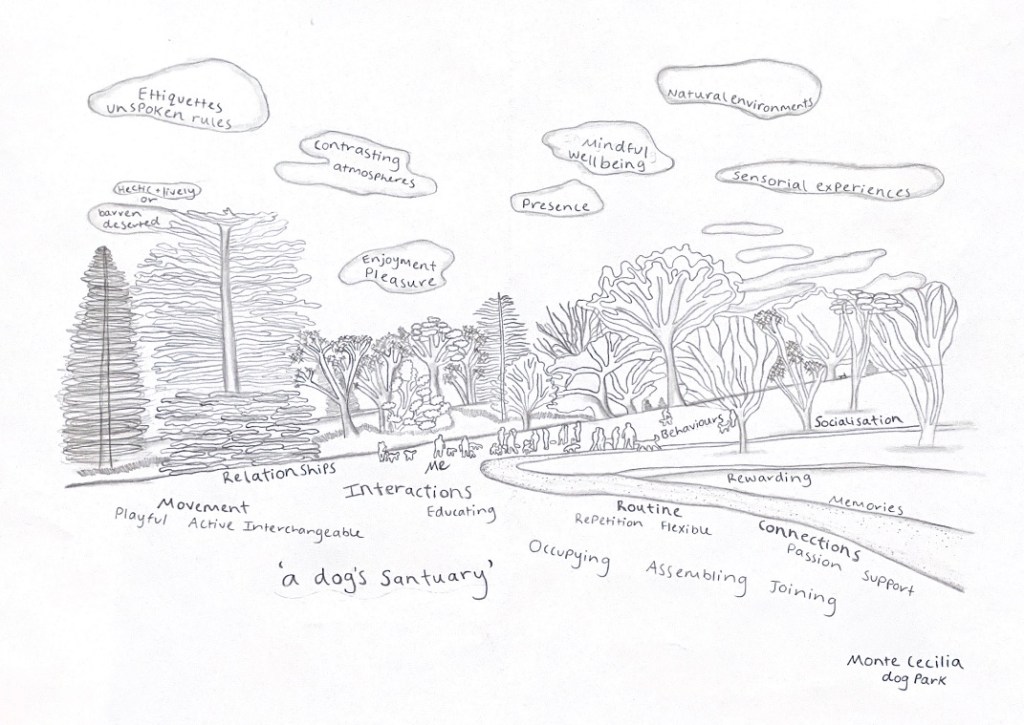 Ettiquettes
unspoken rules
Natural environments
Contrasting
atmospheres
Mindful
wellbeing
Sensorial experiences
Hectic + lively
or
barren
deserted
Presence
Enjoyment
Pleasure
Behaviours
Socialisation
Relationships
Me
Interactions
Educating
Rewarding
Memories
Movement
Playful Active Interchangeable
Routine
Repetition Flexible
Connections
Passion Support
Occupying Assembling Joining
'a dog's santuary'
Monte Cecilia
dog Park